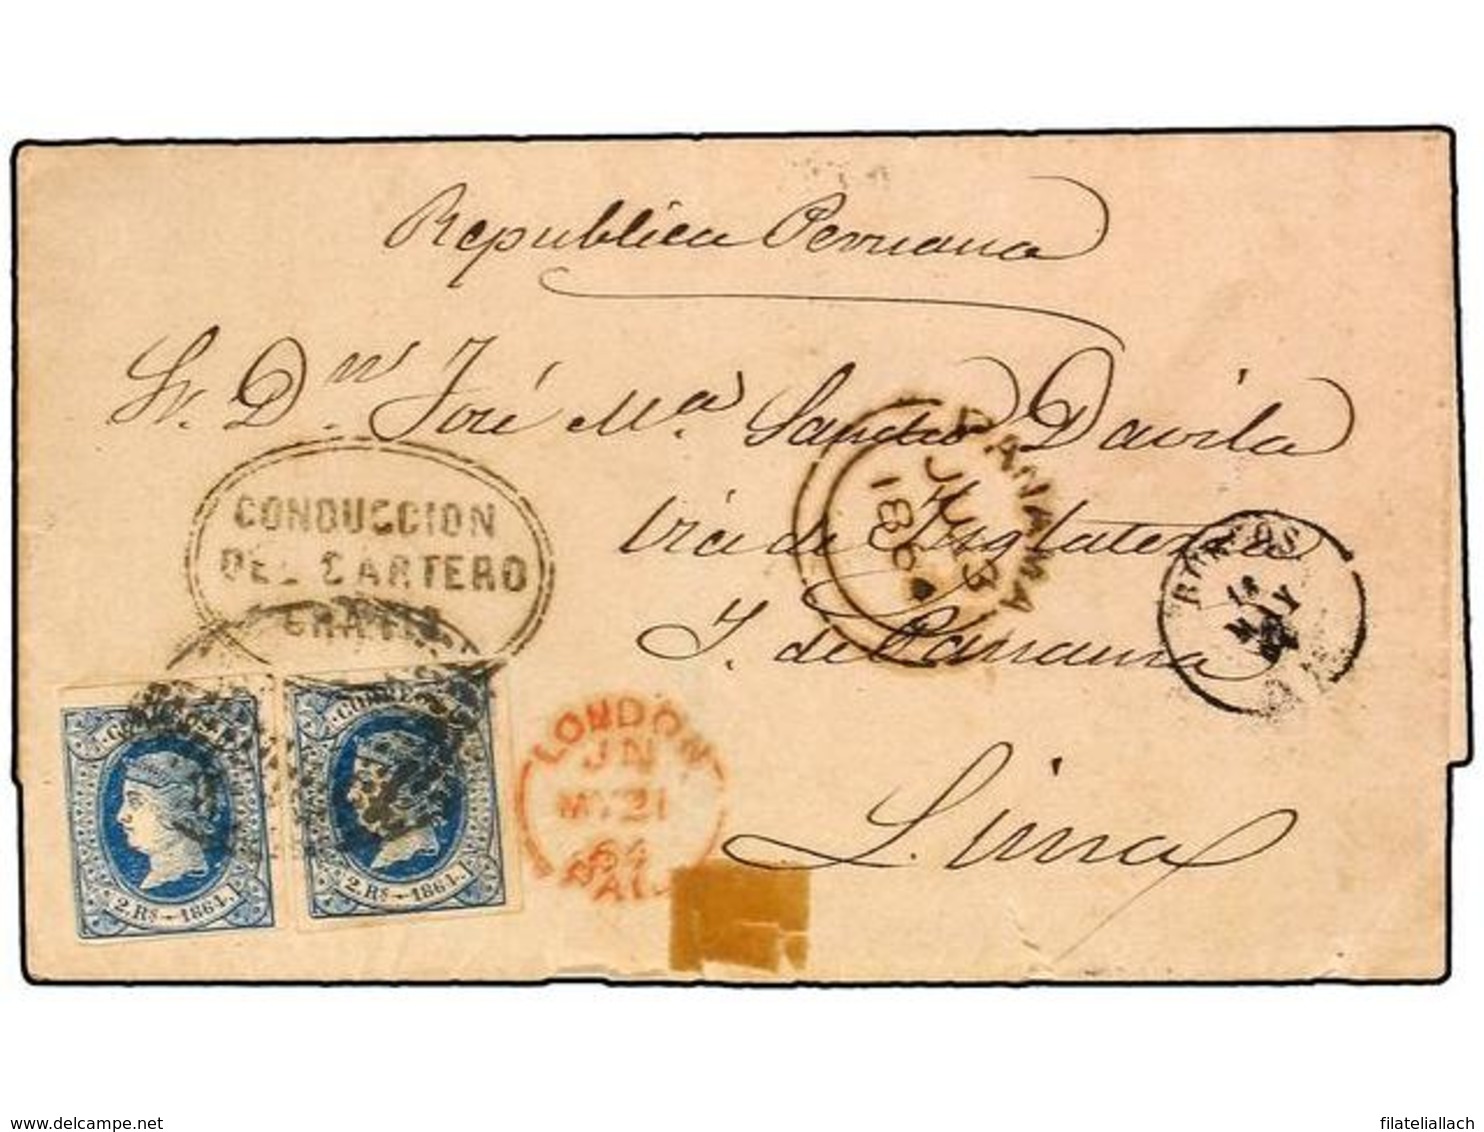 Republica Peruana
Sr. Dn. José Ma. Sancho Davila
via de Inglaterra
Y. de Panama
Lima
CONDUCCION
DEL CARTERO
GRATIS
PANAMA
JU 13
1864
BURGOS
MAY
LONDON
JN
MY 21
64
PAID
CORREOS
2.Rs—1864.
CORREOS
2.Rs—1864.
www.delcampe.net
filateliallach